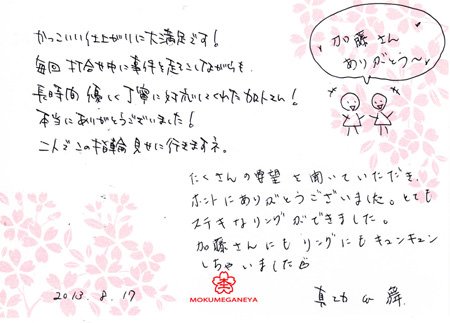 かっこいい仕上がりに大満足です！
毎回打合せ中に事件を起こしながらも、
長時間優しく丁寧に対応してくれた加トさん！
本当にありがとうございました！
二人でこの指輪見せに行きますネ。
加藤さん
ありがとう〜
たくさんの要望を聞いていただき、
ホントにありがとうございました。とても
ステキなリングができました。
加藤さんにもリングにもキュンキュン
しちゃいました
2013.8.17
MOKUMEGANEYA
舞